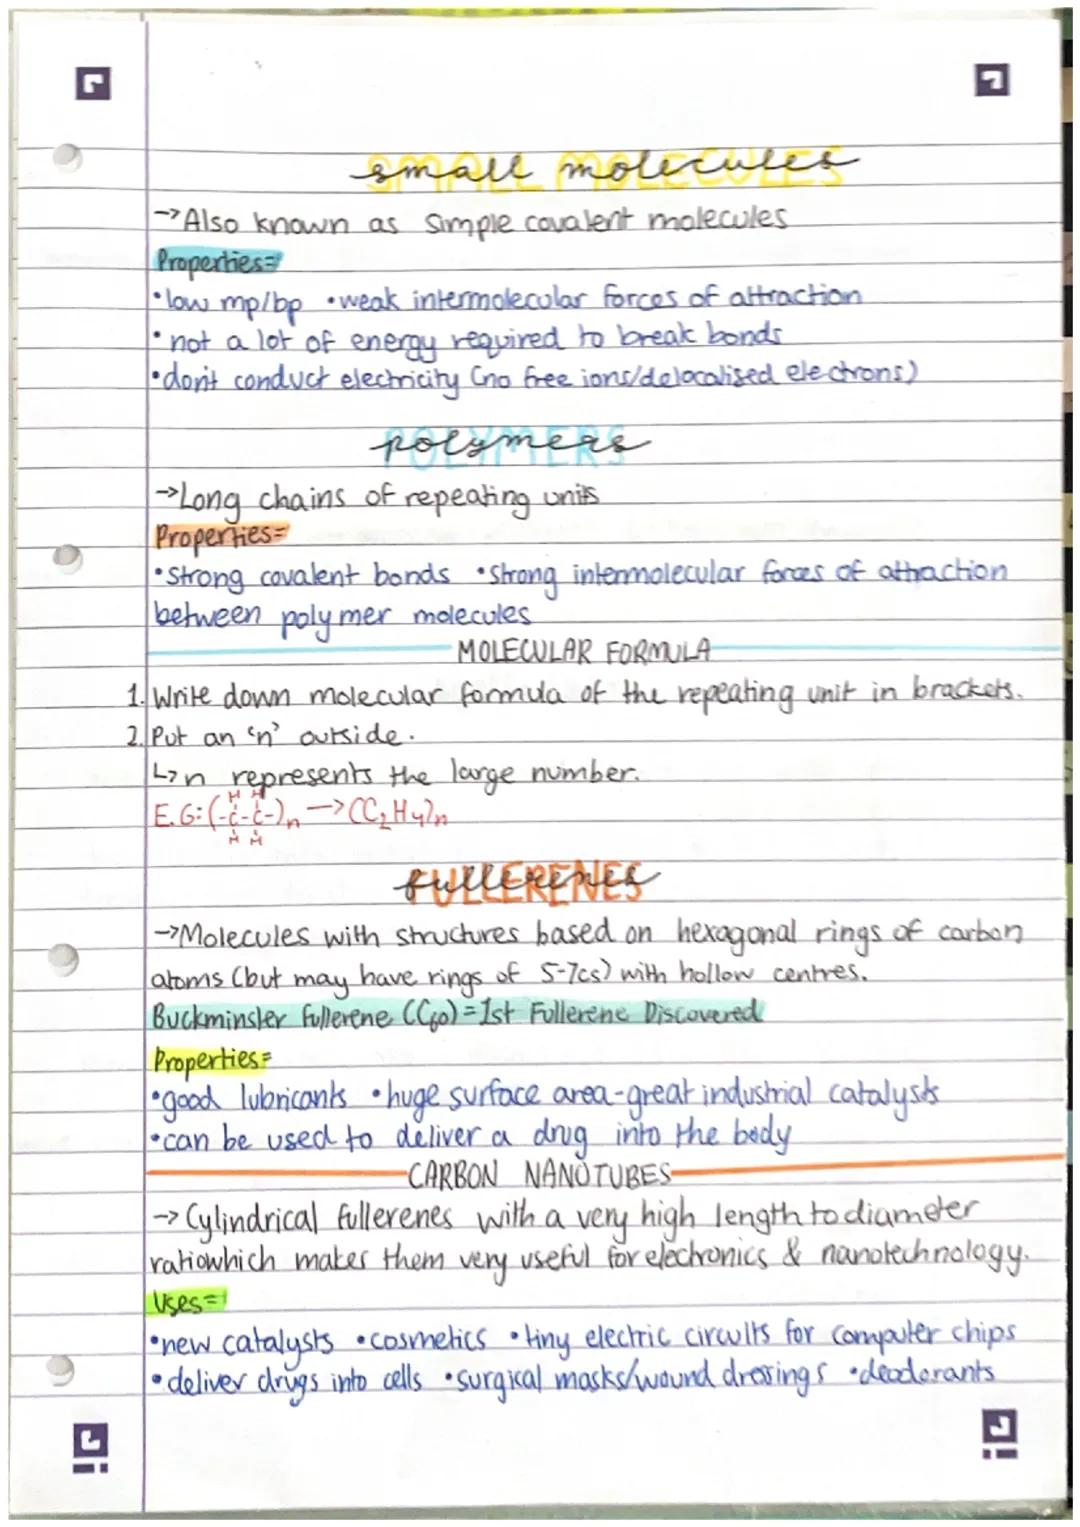 small molecules
SMALL MOLECULES
→Also known as simple covalent molecules
Properties=
•low mp/bp •weak intermolecular forces of attraction
•not a lot of energy required to break bonds
•don't conduct electricity (no free ions/delocalised electrons)
polymers
POLYMERS
→Long chains of repeating units
Properties=
•strong covalent bonds •strong intermolecular forces of attraction
between polymer molecules
MOLECULAR FORMULA
1. Write down molecular formula of the repeating unit in brackets.
2. Put an 'n' outside.
↳n represents the large number.
H H
E.G: (-C-C-)n →(C2H4)n
H H
fullerenes
FULLERENES
→Molecules with structures based on hexagonal rings of carbon
atoms (but may have rings of 5-7cs) with hollow centres.
Buckminster fullerene (C60)=1st Fullerene Discovered
Properties=
•good lubricants •huge surface area-great industrial catalysts
•can be used to deliver a drug into the body
CARBON NANOTUBES
→Cylindrical fullerenes with a very high length to diameter
ratiowhich makes them very useful for electronics & nanotechnology.
Uses=
•new catalysts •cosmetics •tiny electric circuits for computer chips
•deliver drugs into cells •surgical masks/wound dressings •deodorants